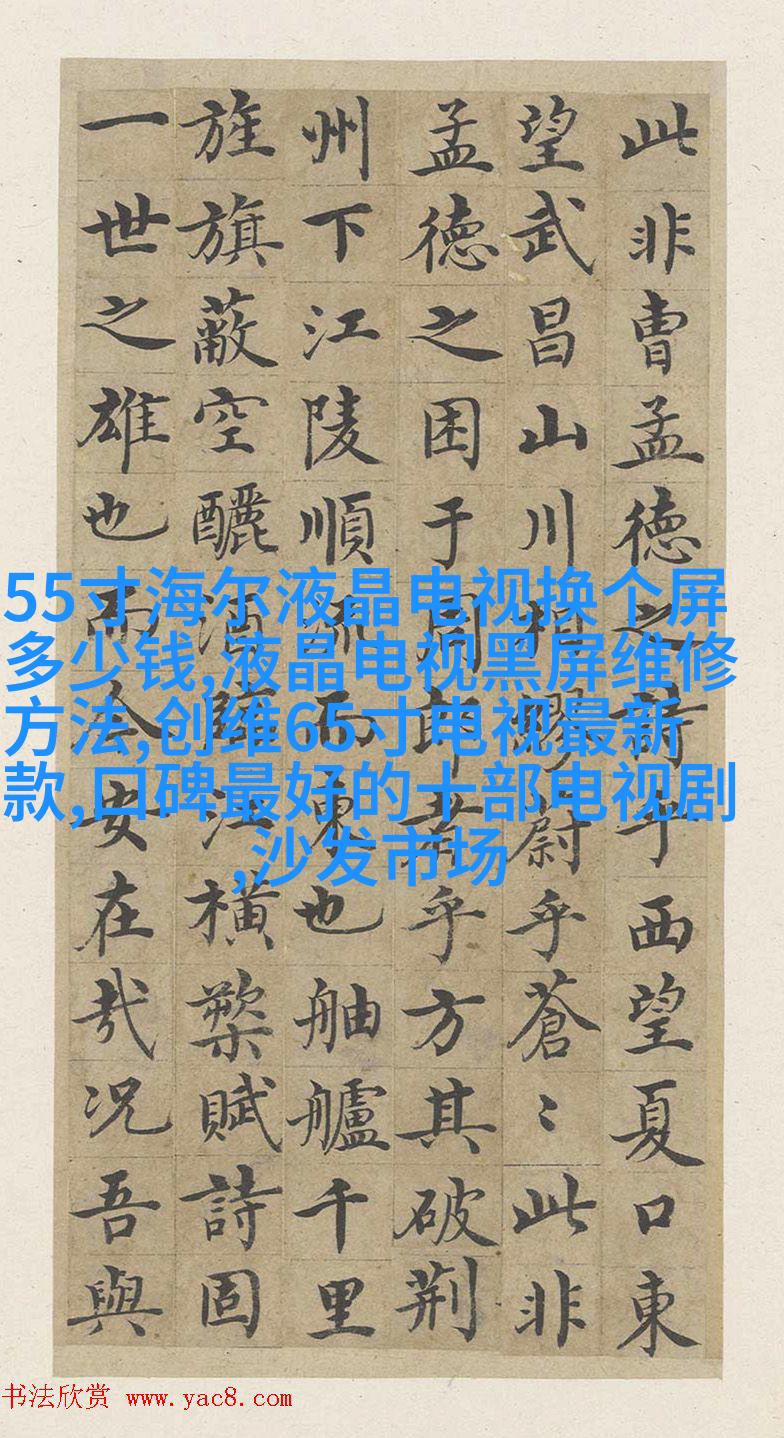 此非曹孟德之詩乎西望夏口東
望武昌山川相繆乎蒼〻此非
孟德之困于周郎者乎方其破荆
州下江陵順流而東也舳艫千里
旌旗蔽空釃酒臨江横槊賦詩固
一世之雄也而今安在哉况吾與
55寸海尔液晶电视换个屏
多少钱,液晶电视黑屏维修
方法,创维65寸电视最新
款,口碑最好的十部电视剧
,沙发市场
书法欣赏 www.yac8.com